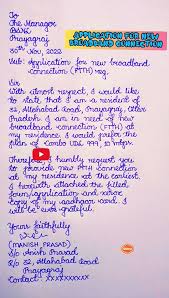 To
The Manager
BSNL
Prayagraj
APPLICATION FOR NEW
BROADBAND CONNECTION
30th Nov, 2022
Sub: Application for new broadband
connection (FTTH) reg.
Sir
With utmost respect, I would like
to state that I am a resident of
22, Allahabad Road, Prayagraj, Uttar
Pradesh. I am in need of new
broadband connection (FTTH) at
my residence. I would prefer the
plan of Combo ULD 999, 10 mbps.
Therefore, I humbly request you
to provide new FTTH connection
at my residence at the earliest.
I herewith attached the filled
down/application and xerox
copy of my aadhaar card. I
will be ever grateful.
Yours faithfully
(MANISH PRASAD)
S/o Anish Prasad
22, Allahabad Road
Prayagraj
Contact: xxxxxxxxxx